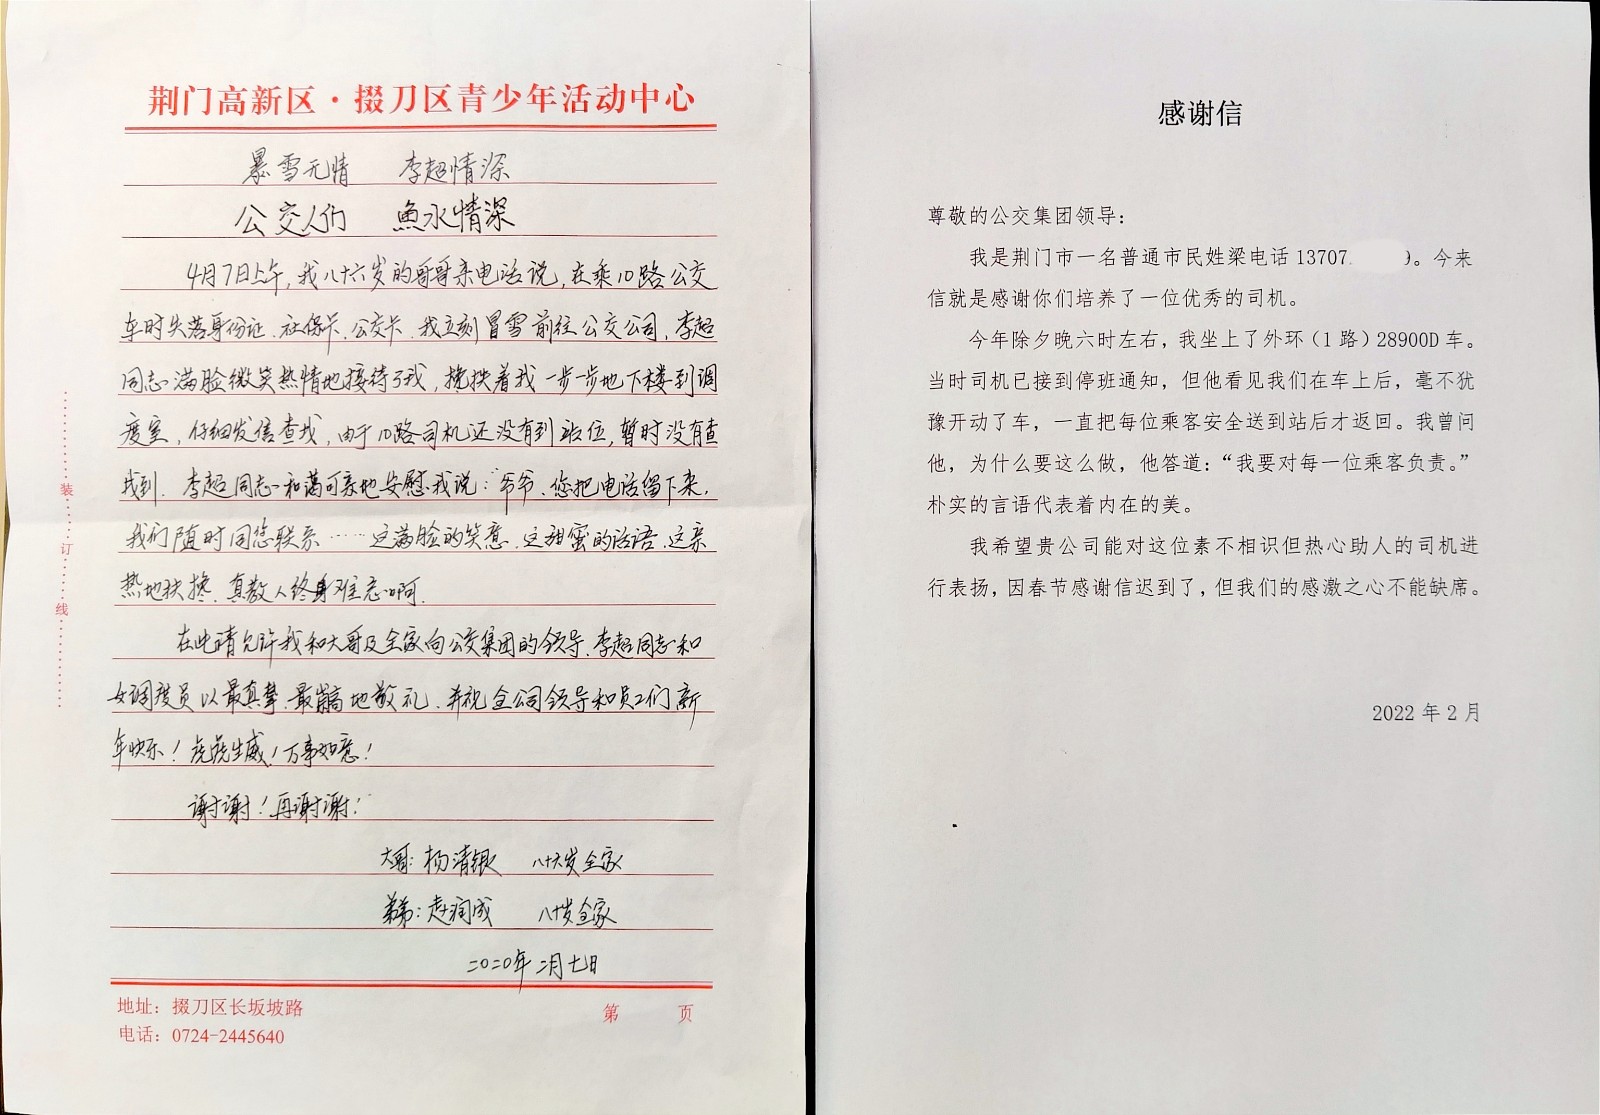 荆门高新区·掇刀区青少年活动中心
暴雪无情 李超情深
公交人们 鱼水情深
4月7日上午,我八十六岁的哥哥来电话说,在乘10路公交
车时失落身份证、社保卡、公交卡。我立刻冒雪前往公交公司,李超
同志满脸微笑热情地接待了我,搀扶着我一步一步地下楼到调
度室,仔细发信查找,由于10路司机还没有到站位,暂时没有查
找到。李超同志和蔼可亲地安慰我说:爷爷、您把电话留下来,
我们随时同您联系……这满脸的笑意、这甜蜜的话语、这亲
热地扶搀、真教人终身难忘啊。
在此请允许我和大哥及全家向公交集团的领导、李超同志和
女调度员以最真挚、最崇高地敬礼、并祝全公司领导和员工们新
年快乐!虎虎生威!万事如意!
谢谢!再谢谢!
大哥:杨清银 八十六岁全家
弟弟:赵润成 八十岁全家
二〇二〇年二月七日
装
订
线
地址:掇刀区长坂坡路
第 页
电话:0724-2445640
感谢信
尊敬的公交集团领导:
我是荆门市一名普通市民姓梁电话13707. 9。今来
信就是感谢你们培养了一位优秀的司机。
今年除夕晚六时左右,我坐上了外环(1路)28900D车。
当时司机已接到停班通知,但他看见我们在车上后,毫不犹
豫开动了车,一直把每位乘客安全送到站后才返回。我曾问
他,为什么要这么做,他答道:“我要对每一位乘客负责。”
朴实的言语代表着内在的美。
我希望贵公司能对这位素不相识但热心助人的司机进
行表扬,因春节感谢信迟到了,但我们的感激之心不能缺席。
2022年2月